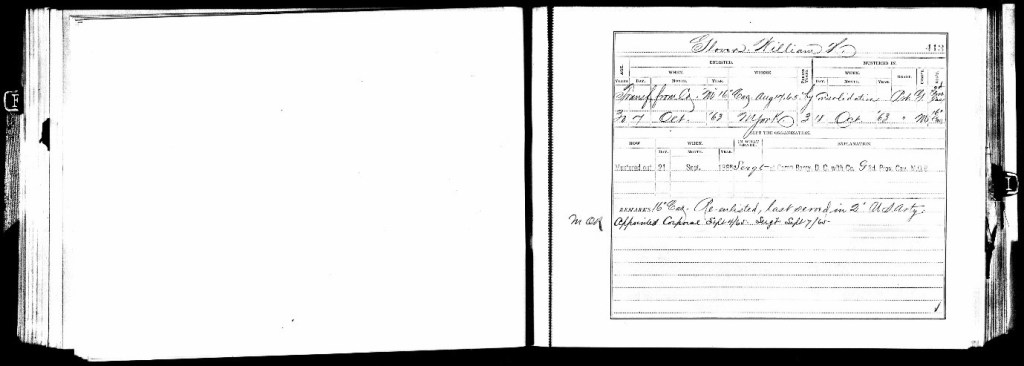 Glover, William 413
AGE. ENLISTED. MUSTERED IN.
WHEN. WHERE. PERIOD YEARS. WHEN. GRADE. COMP'Y. REG'T.
YEARS. DAY. MONTH. YEAR. DAY. MONTH. YEAR.
Transf. from Co. M 16" Cav Aug 17/65 by Consolidation Pvt G.
7 Oct. '63 N York 3 Oct. '63 " M 16"
LEFT THE ORGANIZATION.
HOW WHEN. IN WHAT GRADE. EXPLANATION.
DAY. MONTH. YEAR.
Mustered out 21 Sept. 1865 Sergt Camp Barry, D. C. with Co. G 3d Prov. Cav. N.Y.V.
REMARKS: 16" Cav. Re-enlisted, last served in 2" U S Arty.
M OR Appointed Corporal Sept 4/65 Sergt Sept 7/65
1